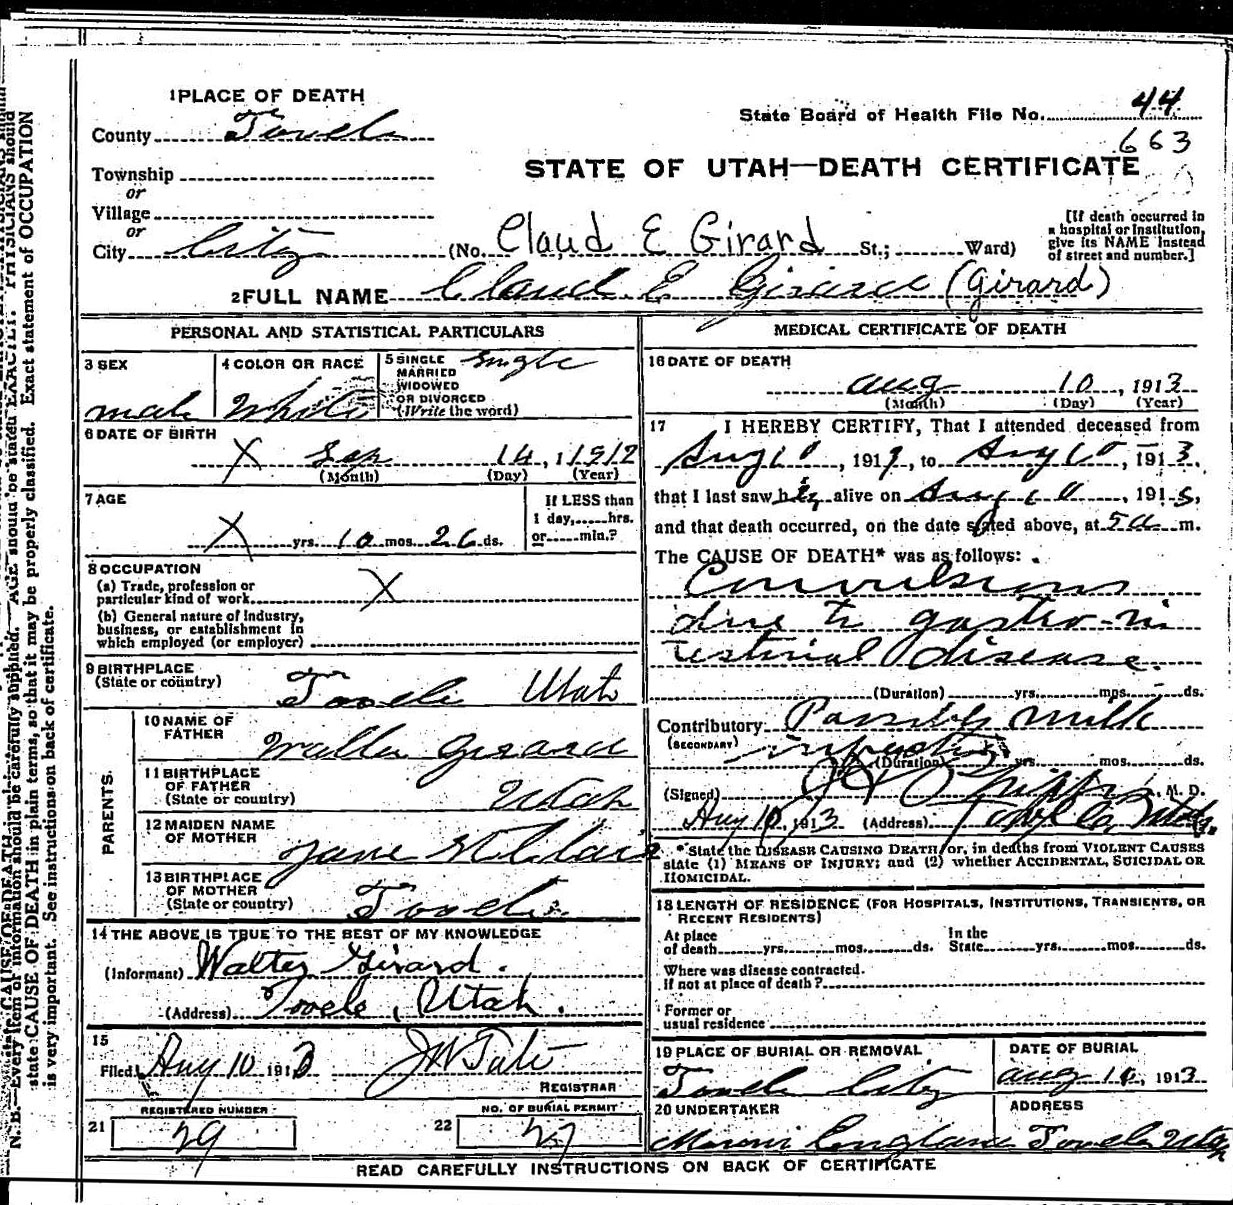 1 PLACE OF DEATH
County Tooele
State Board of Health File No. 44
663
STATE OF UTAH—DEATH CERTIFICATE
Township
or
Village
or
City City (No. Claud E Girard St.; Ward)
[If death occurred in a hospital or institution, give its NAME instead of street and number.]
2 FULL NAME Claud E Girard (Girard)
PERSONAL AND STATISTICAL PARTICULARS
3 SEX
male
4 COLOR OR RACE
White
5 SINGLE
MARRIED
WIDOWED
OR DIVORCED
(Write the word)
Single
6 DATE OF BIRTH
X Sep 14, 1912
(Month) (Day) (Year)
7 AGE
X yrs. 10 mos. 26 ds.
If LESS than
1 day, hrs.
or min.?
8 OCCUPATION
(a) Trade, profession or
particular kind of work X
(b) General nature of industry,
business, or establishment in
which employed (or employer)
9 BIRTHPLACE
(State or country)
Tooele Utah
PARENTS.
10 NAME OF
FATHER
Walter Girard
11 BIRTHPLACE
OF FATHER
(State or country)
Utah
12 MAIDEN NAME
OF MOTHER
Jane
13 BIRTHPLACE
OF MOTHER
(State or country)
Tooele
14 THE ABOVE IS TRUE TO THE BEST OF MY KNOWLEDGE
(Informant) Walter Girard.
(Address) Tooele, Utah.
15
Filed Aug 10 1913 J W Tate
REGISTRAR
REGISTERED NUMBER
21 29
NO. OF BURIAL PERMIT
22 27
MEDICAL CERTIFICATE OF DEATH
16 DATE OF DEATH
Aug 10, 1913
(Month) (Day) (Year)
17 I HEREBY CERTIFY, That I attended deceased from
Aug 10, 191, to Aug 10, 1913,
that I last saw h alive on Aug 10, 191,
and that death occurred, on the date stated above, at 5 a m.
The CAUSE OF DEATH* was as follows:
Convulsions
due to gastro-in
testinal disease.
(Duration) yrs. mos. ds.
Contributory Possibly milk
(SECONDARY)
infection
(Duration) yrs. mos. ds.
(Signed) Phipps, M. D.
Aug 10, 1913 (Address) Tooele, Utah.
*State the DISEASE CAUSING DEATH or, in deaths from VIOLENT CAUSES
state (1) MEANS OF INJURY; and (2) whether ACCIDENTAL, SUICIDAL OR
HOMICIDAL.
18 LENGTH OF RESIDENCE (FOR HOSPITALS, INSTITUTIONS, TRANSIENTS, OR
RECENT RESIDENTS)
At place
of death yrs. mos. ds.
In the
State yrs. mos. ds.
Where was disease contracted.
if not at place of death?
Former or
usual residence
19 PLACE OF BURIAL OR REMOVAL
Tooele City
DATE OF BURIAL
Aug 10, 1913
20 UNDERTAKER
Moroni England
ADDRESS
Tooele Utah
READ CAREFULLY INSTRUCTIONS ON BACK OF CERTIFICATE
N. B.—Every item of information should be carefully supplied. AGE should be stated EXACTLY. PHYSICIANS should
state CAUSE OF DEATH in plain terms, so that it may be properly classified. Exact statement of OCCUPATION
is very important. See instructions on back of certificate.